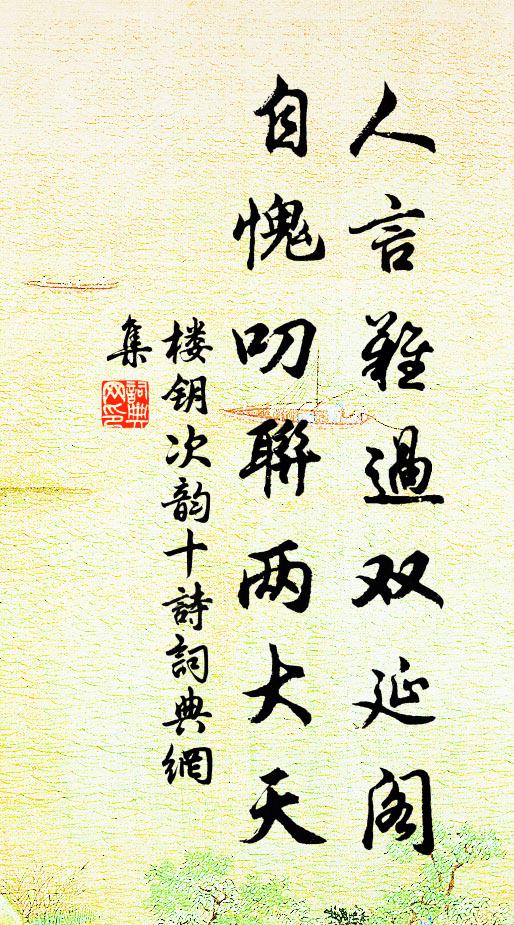 人言難過双延阁
自愧叨聯两大天
楼钥次韵十詩詞典網
集
詞典
网印